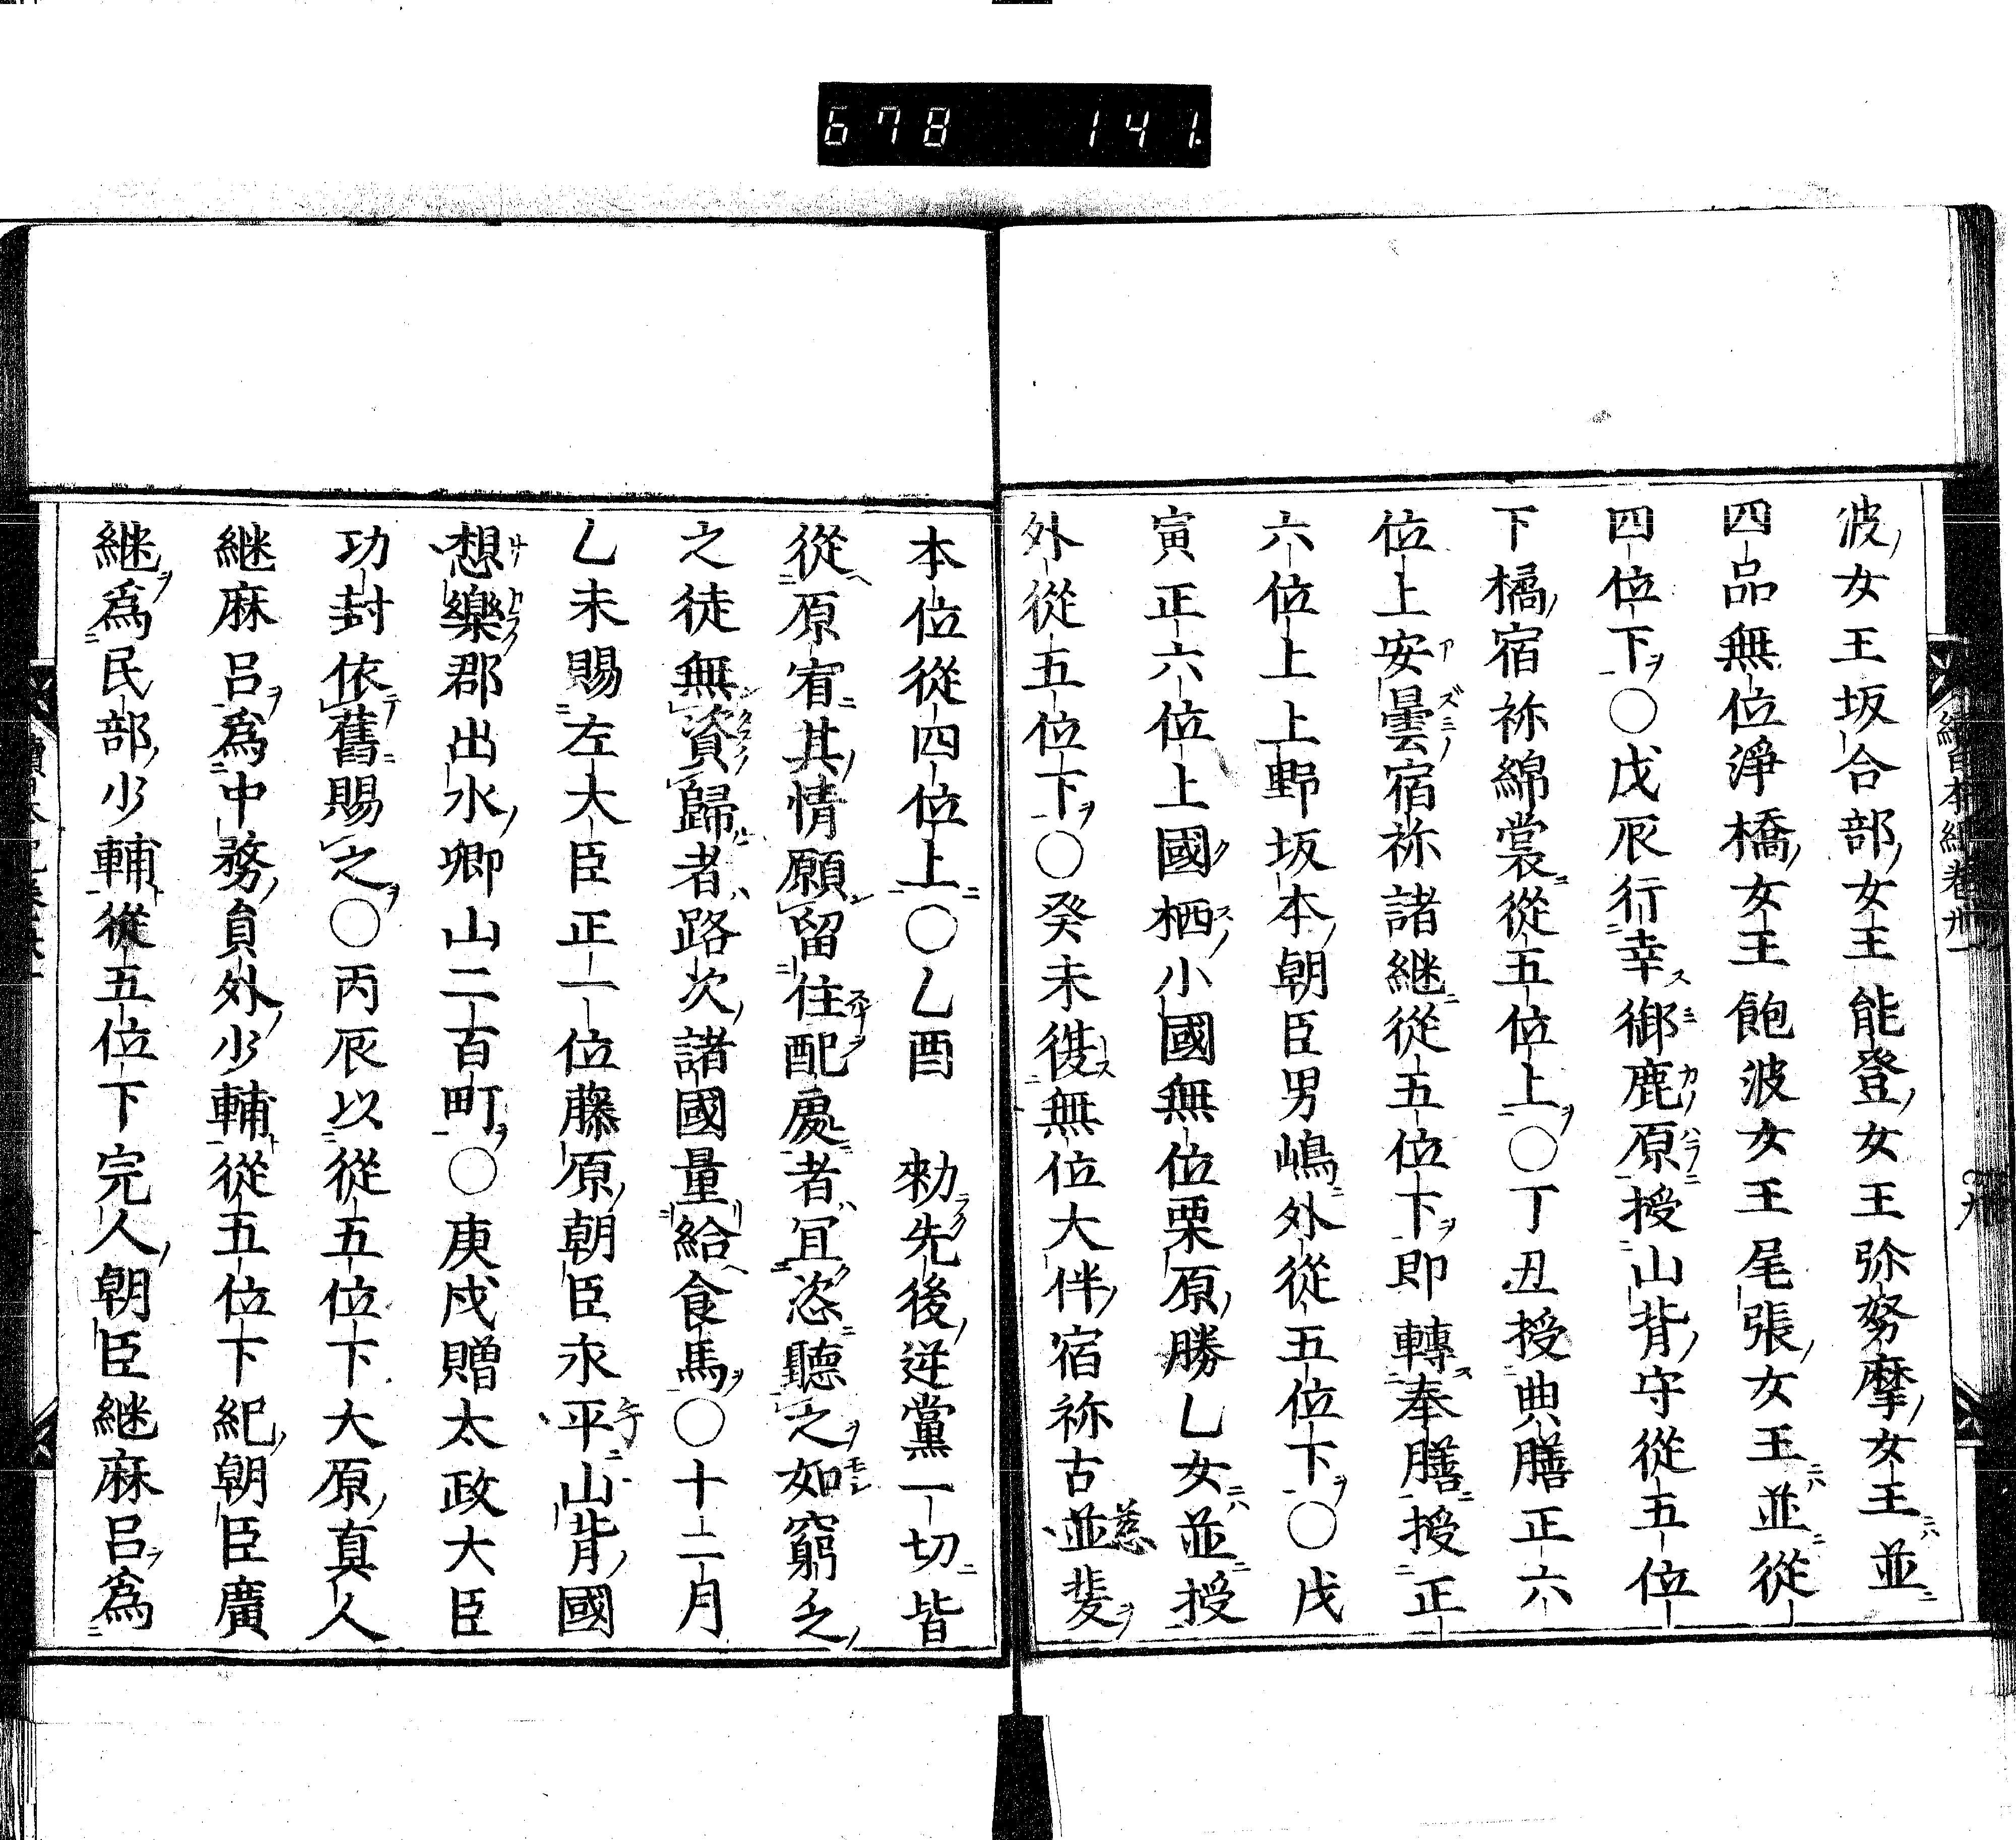 678 141.
波女王坂合部女王能登女王弥努摩女王並
四品無位淨橋女王飽波女王尾張女王並從
四位下○戊辰行幸御鹿原授山背守從五位
下橘宿祢綿裳從五位上○丁丑授典膳正六
位上安曇宿祢諸継從五位下即轉奉膳授正
六位上上野坂本朝臣男嶋外從五位下○戊
寅正六位上國栖小國無位栗原勝乙女並授
外從五位下○癸未復無位大伴宿祢古並慈斐
本位從四位上○乙酉　勑先後逆黨一切皆
從原宥其情願留住配處者冝恣聽之如窮乏
之徒無資歸者路次諸國量給食馬○十二月
乙未賜左大臣正一位藤原朝臣永平山背國
想樂郡出水卿山二百町○庚戌贈太政大臣
功封依舊賜之○丙辰以從五位下大原真人
継麻呂爲中務貟外少輔從五位下紀朝臣廣
継爲民部少輔從五位下完人朝臣継麻呂爲